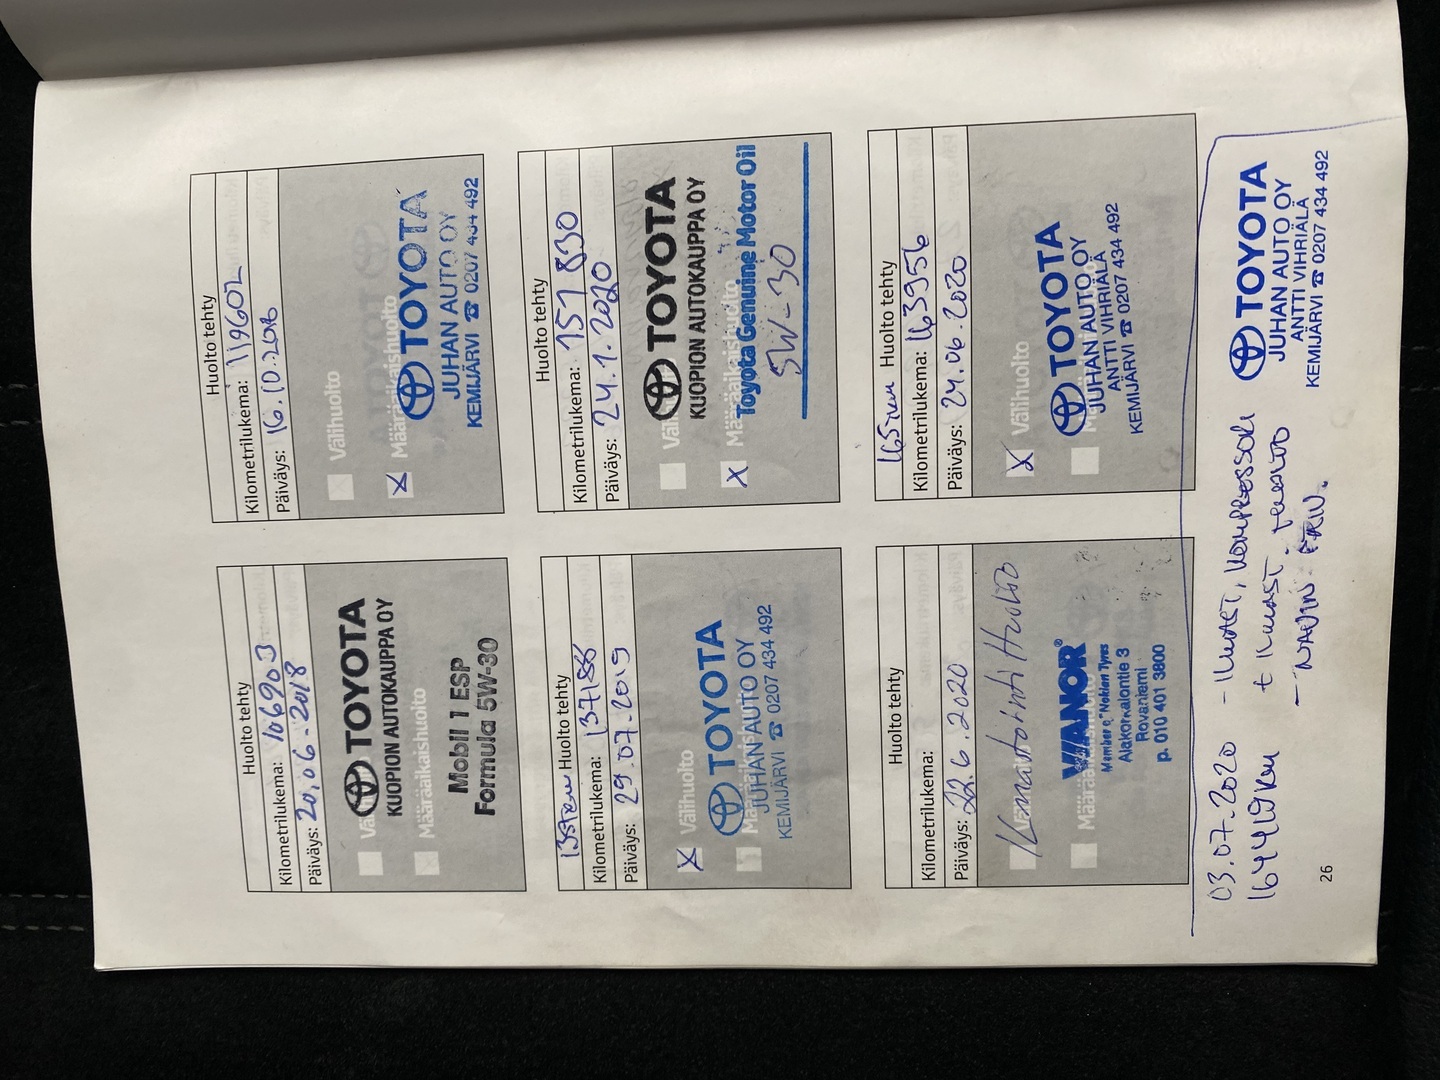 Huolto tehty
Kilometrilukema: 106903
Päiväys: 20.06.2018
TOYOTA
KUOPION AUTOKAUPPA OY
Määräaikaishuolto
Mobil 1 ESP
Formula 5W-30
Huolto tehty
Kilometrilukema: 119602
Päiväys: 16.10.2018
Välihuolto
x Määräaikaishuolto
TOYOTA
JUHAN AUTO OY
KEMIJÄRVI ☎ 0207 434 492
Huolto tehty
Kilometrilukema: 137188
Päiväys: 29.07.2019
x Välihuolto
TOYOTA
JUHAN AUTO OY
KEMIJÄRVI ☎ 0207 434 492
Huolto tehty
Kilometrilukema: 157830
Päiväys: 24.1.2020
TOYOTA
KUOPION AUTOKAUPPA OY
x Määräaikaishuolto
Toyota Genuine Motor Oil
5W-30
Huolto tehty
Kilometrilukema:
Päiväys: 22.6.2020
Ilmastointi Huolto
VIANOR
Member of Nokian Tyres
Alakorkalontie 3
Rovaniemi
p. 010 401 3800
165tkm Huolto tehty
Kilometrilukema: 163956
Päiväys: 24.06.2020
x Välihuolto
TOYOTA
JUHAN AUTO OY
ANTTI VIHRIÄLÄ
KEMIJÄRVI ☎ 0207 434 492
03.07.2020 - ILMAST. KOMPRESSORI
164419km + ILMAST. HUOLTO
TOYOTA
JUHAN AUTO OY
ANTTI VIHRIÄLÄ
KEMIJÄRVI ☎ 0207 434 492
26